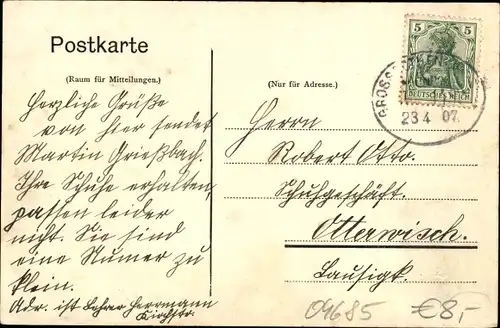 Postkarte
(Raum für Mitteilungen.)
(Nur für Adresse.)
5 5
DEUTSCHES REICH
GROSS
23 4 07.
Herzliche Grüße
von hier sendet
Martin Grießbach.
Ihre Schuhe erhalten,
passen leider
nicht. Sie sind
eine Numer zu
klein.
Adr. ist Lehrer Herrmann
Kirchstr.
Herrn
Robert Otto.
Schuhgeschäft.
Otterwisch.
Lausigk.
04685 €8,-